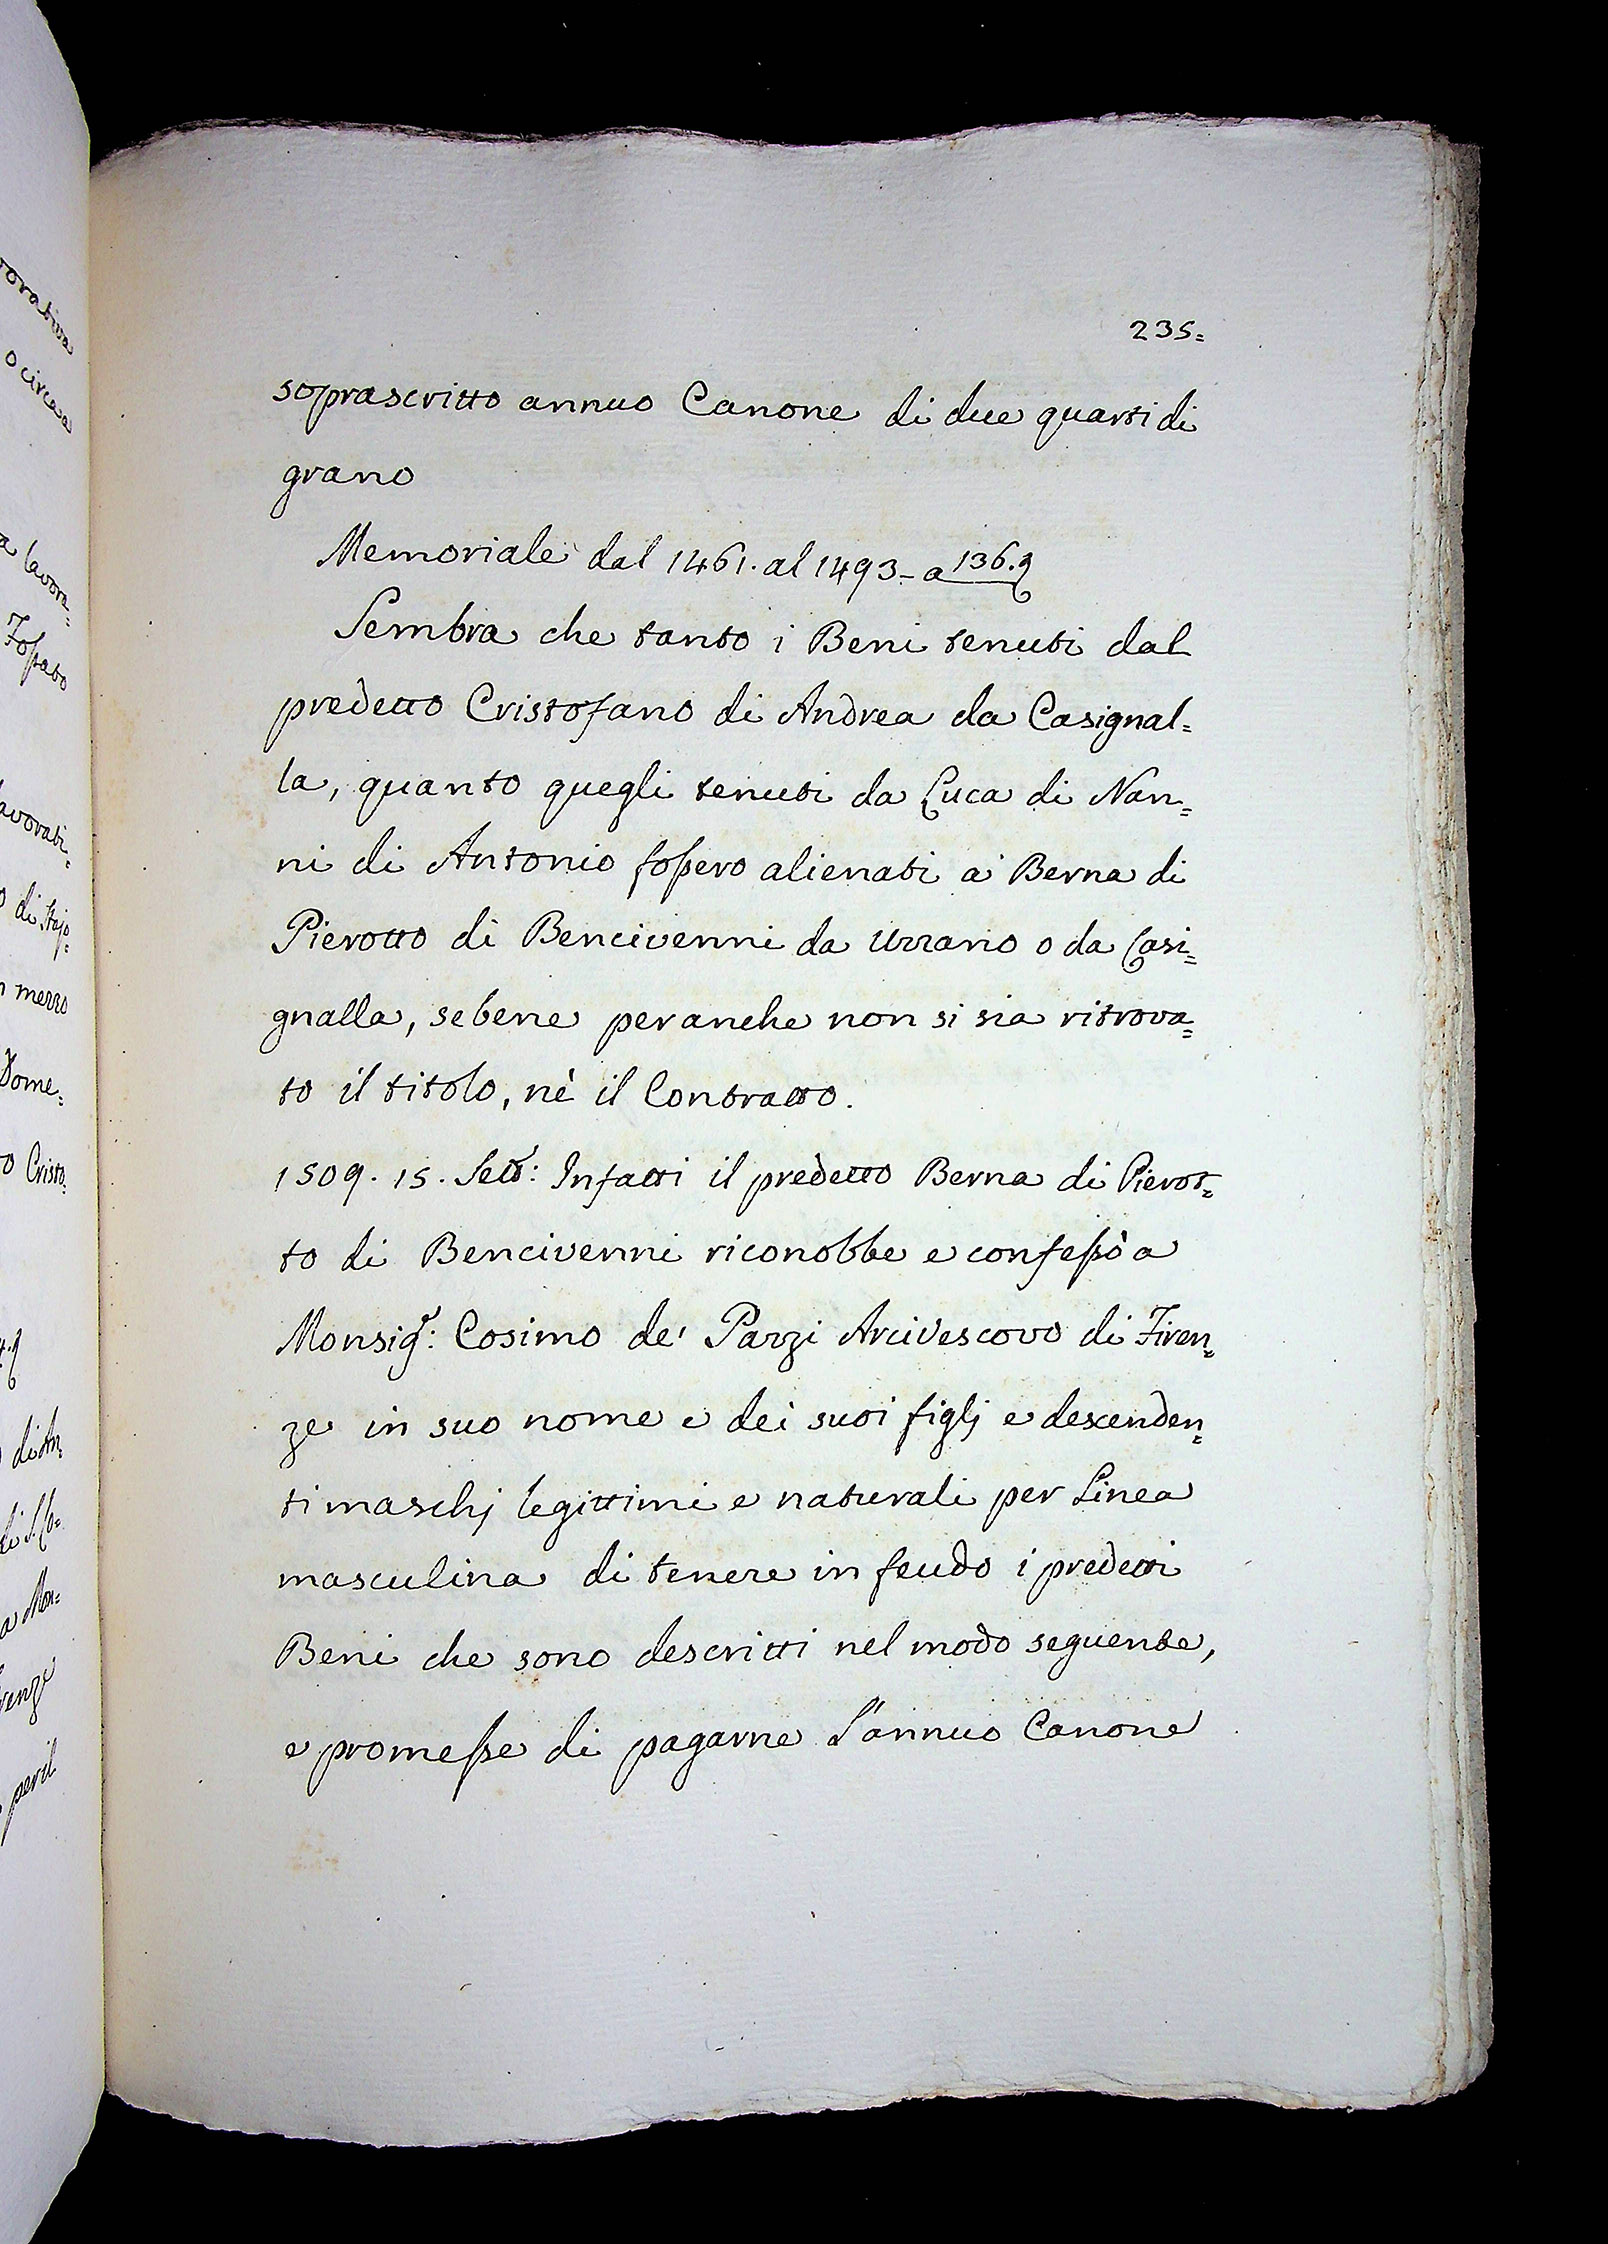 235=
soprascritto annuo Canone di due quarti di
grano
Memoriale dal 1461. al 1493- a 136.
Sembra che tanto i Beni tenuti dal
predetto Cristofano di Andrea da Casignal=
la, quanto quegli tenuti da Luca di Nan=
ni di Antonio fossero alienati a Berna di
Pierotto di Bencivenni da Uzzano o da Casi=
gnalla, sebene peranche non si sia ritrova=
to il titolo, nè il Contratto.
1509. 15. Sett: Infatti il predetto Berna di Pierot=
to di Bencivenni riconobbe e confessò a
Monsig: Cosimo de' Pazzi Arcivescovo di Firen=
ze in suo nome e dei suoi figlj e descenden=
ti maschj legittimi e naturali per Linea
masculina di tenere in feudo i predetti
Beni che sono descritti nel modo seguente,
e promesse di pagarne L'annuo Canone